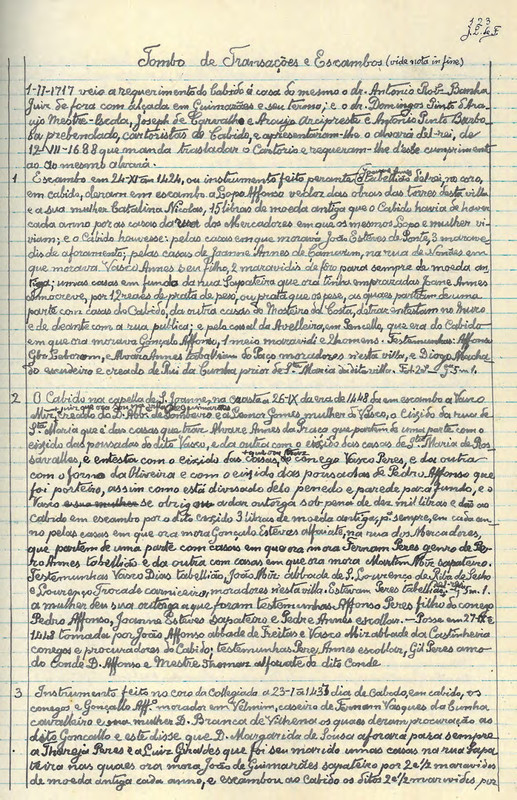 123
Tombo de Transações e Escambos (vide nota in fine)
1-II-1717 veio a requerimento do Cabido á casa do mesmo o dr. Antonio Roiz Banha
Juiz de fora com alçada em Guimarães e seu termo; e o dr. Domingos Pinto d'Arau-
jo Mestre-Escola, Joseph de Carvalho e Araujo Arcipreste e Antonio Pinto Barbo-
sa prebendado, Cartoristas do Cabido, e apresentaram-lhe o alvará del-rei, de
12-VII-1688 que manda trasladar o Cartorio e requereram-lhe désse cumprimento
ao do mesmo alvará.
1 Escambo em 24-XI a 1424, ou instrumento feito perante tabellião del rei, no coro,
em cabido, deram em escambo a Lopo Affonso vedor das obras das torres desta villa
e a sua mulher Catalina Nicolas, 15 libras de moeda antiga que o Cabido havia de haver
cada anno por as casas da rua dos Mercadores em que os mesmos Lopo e mulher vi-
viam; e o Cabido houvesse: pelas casas em que morava João Esteves da Ponte, 3 marave-
dis de aforamento; pelas casas de Joanne Annes de Camarum, na rua de em
que morava Vasco Annes seu filho, 2 maravidis de foro para sempre de moeda an-
tiga; umas casas em funda da rua Sapateira que ora tinha emprazadas Joane Annes
almocreve, por 12 reaes de prata de peso, ou prata que os pese, as quaes partem de uma
parte com casas do Cabido, da outra casas do Mosteiro da Costa, detraz entestam no muro
e de deante com a rua publica; e pelo casal da Avelleira, em Pencello, que era do Cabido
em que ora morava Gonçalo Affonso, 1 meio maravidi e 2 homens. Testemunhas: Affonso
Glz Laboram, e Alvaro Annes tabelliam do Paço moradores nesta villa, e Diogo Macha-
do escudeiro e creado de Rui da Cunha prior de Stª Maria da dita villa.
2 O Cabido na capella de S. Joanne, na crasta a 25-IX da era de 1448 da em escambo a Vasco
Miz, creado do D. Prior de Lombaro e a Leonor Gomes mulher de Vasco, o eixido da rua de
Stª Maria que é das casas que traz Alvare Annes da Praça que partem de uma parte com o
eixido das pousadas do dito Vasco, e da outra com o eixido das casas de Stª Maria de Ros-
savalles, e entesta com o eixido das casas, Conego Vasco Peres, e da outra
com o forno da Oliveira e com o eixido das pousadas de Pedro Affonso que
foi porteiro, assim como está divisado pelo penedo e parede para fundo, e o
Vasco e sua mulher se obrigou a dar outorga sob pena de dez mil libras e dão ao
Cabido em escambo por o dito eixido 3 libras de moeda antiga, p.ª sempre, em cada an-
no pelas casas em que ora mora Gonçalo Esteves alfaiate, na rua dos Mercadores,
que partem de uma parte com casas em que ora mora Fernam Peres genro de Pe-
dro Annes tabellião e da outra com casas em que ora mora Martim Miz sapateiro.
Testemunhas Vasco Dias tabellião, João Miz abbade de S. Lourenço de Riba de Selho
e Lourenço Trocado carniceiro, moradores nesta villa. Estevam Peres tabellião
a mulher deu sua outorga a que foram testemunhas Affonso Peres filho do conego
Pedro Affonso, Joanne Esteves sapateiro e Pedre Annes escollar. — Posse em 27-IX e
1448 tomada por João Affonso abbade de Freitas e Vasco Miz abbade da Castanheira
conegos e procuradores do Cabido; testemunhas Pere Annes escollar, Gil Peres amo
do Conde D. Affonso e Mestre Thomaz alfaiate do dito Conde
3 Instrumento feito no coro da Collegiada a 23-1 a 1437 dia de Cabedo, em cabido, os
conegos e Gonçallo Affº morador em Vermim, caseiro de Fernam Vasques da Cunha
cavalleiro e sua mulher D. Branca de Vilhena os quaes deram procuração ao
dito Goncallo e este disse que D. Margarida de Sousa aforará para sempre
a Thereja Peres e a Luiz Giraldes que foi seu marido umas casas na rua Sapa-
teira nas quaes ora mora João de Guimarães sapateiro por 2 e ½ maravidos
de moeda antiga cada anno, e escambou ao Cabido os ditos 2 e ½ maravidos por